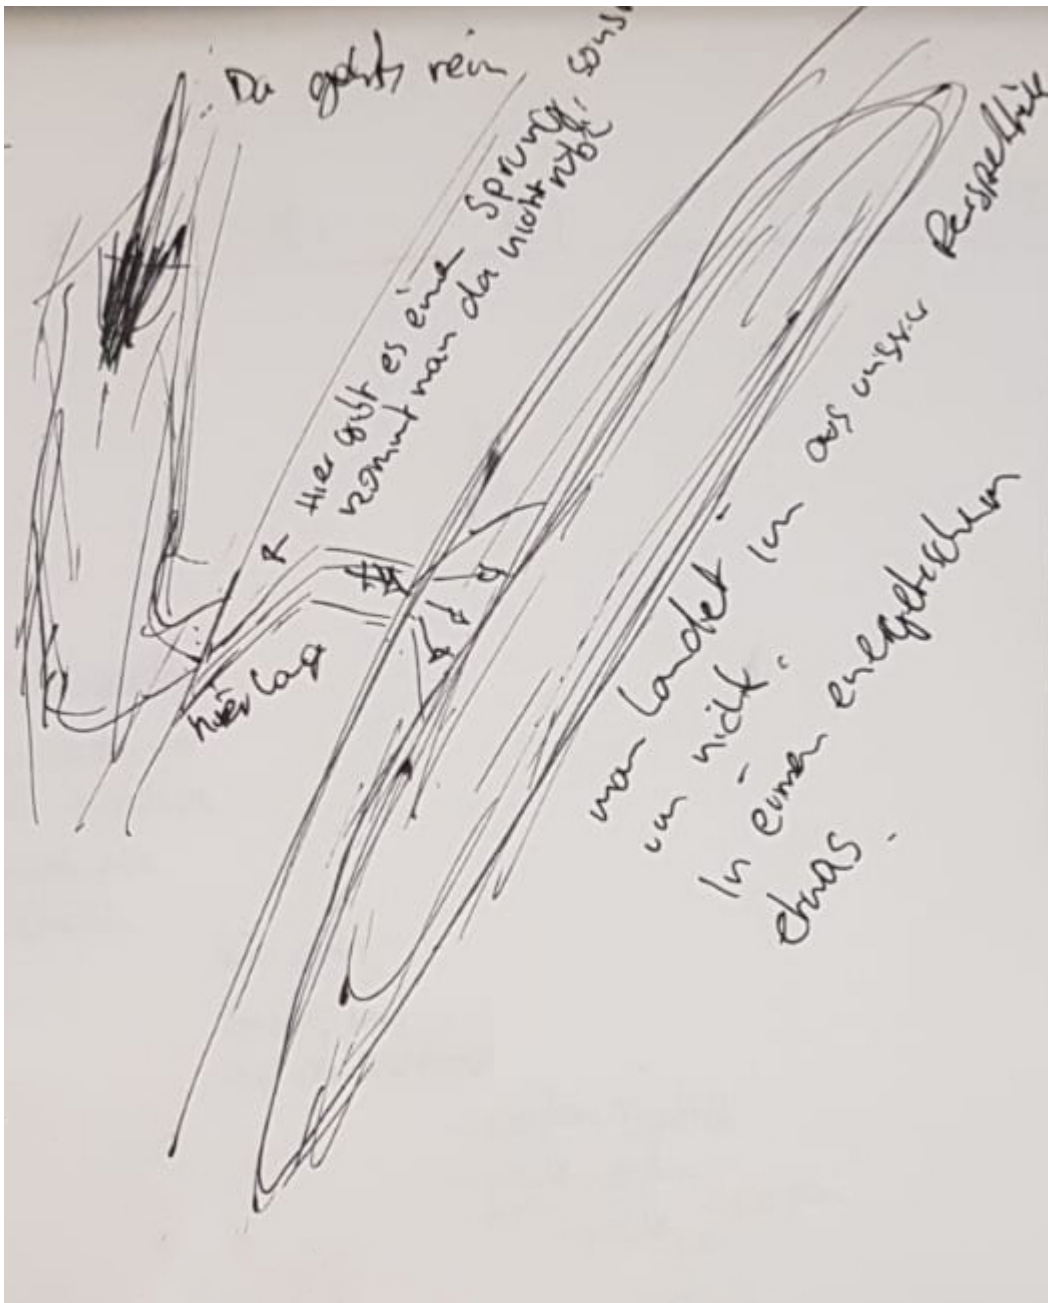 Da geht's rein
Hier gibt es eine Sprung, sons
kommt man da nicht rüber
hier lang
man landet im aus unsrer Perspektive
un nicht.
In einem energetischem
etwas.